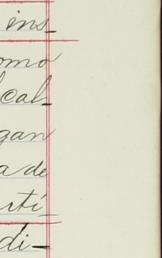 ins
omo
cal-
gan
a de
rti-
di-